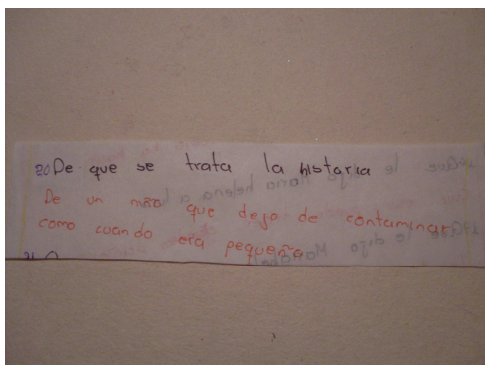 20 De que se trata la historia
De un mara que dejo de contaminar
como cuando era pequeña